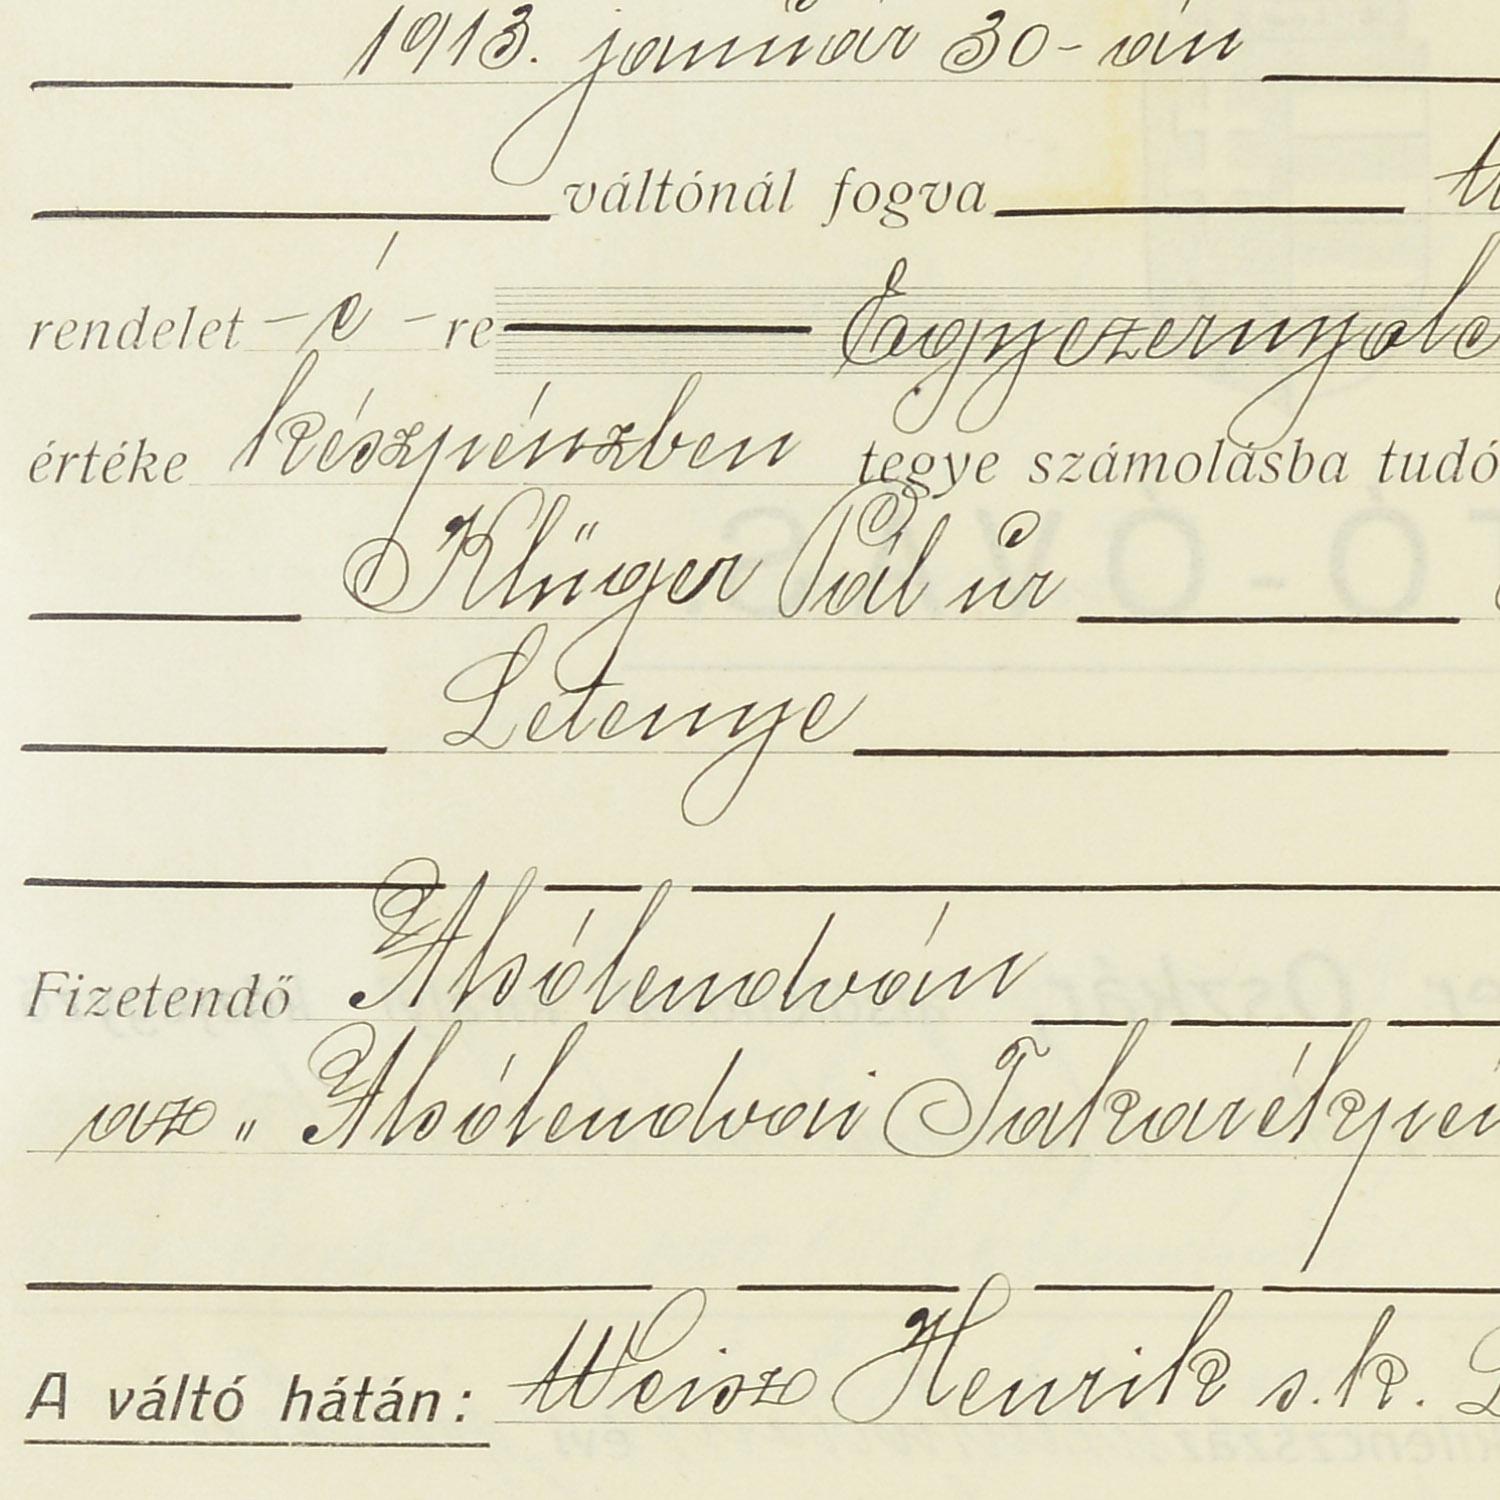 1913. január 30-án
váltónál fogva
rendelet -é-re Egyezernyolc
értéke készpénzben tegye számolásba tudó
Klüger Pál úr
Letenye
Fizetendő Alsólendván
az „Alsólendvai Takarékpén
A váltó hátán: Weisz Henrik s.k.